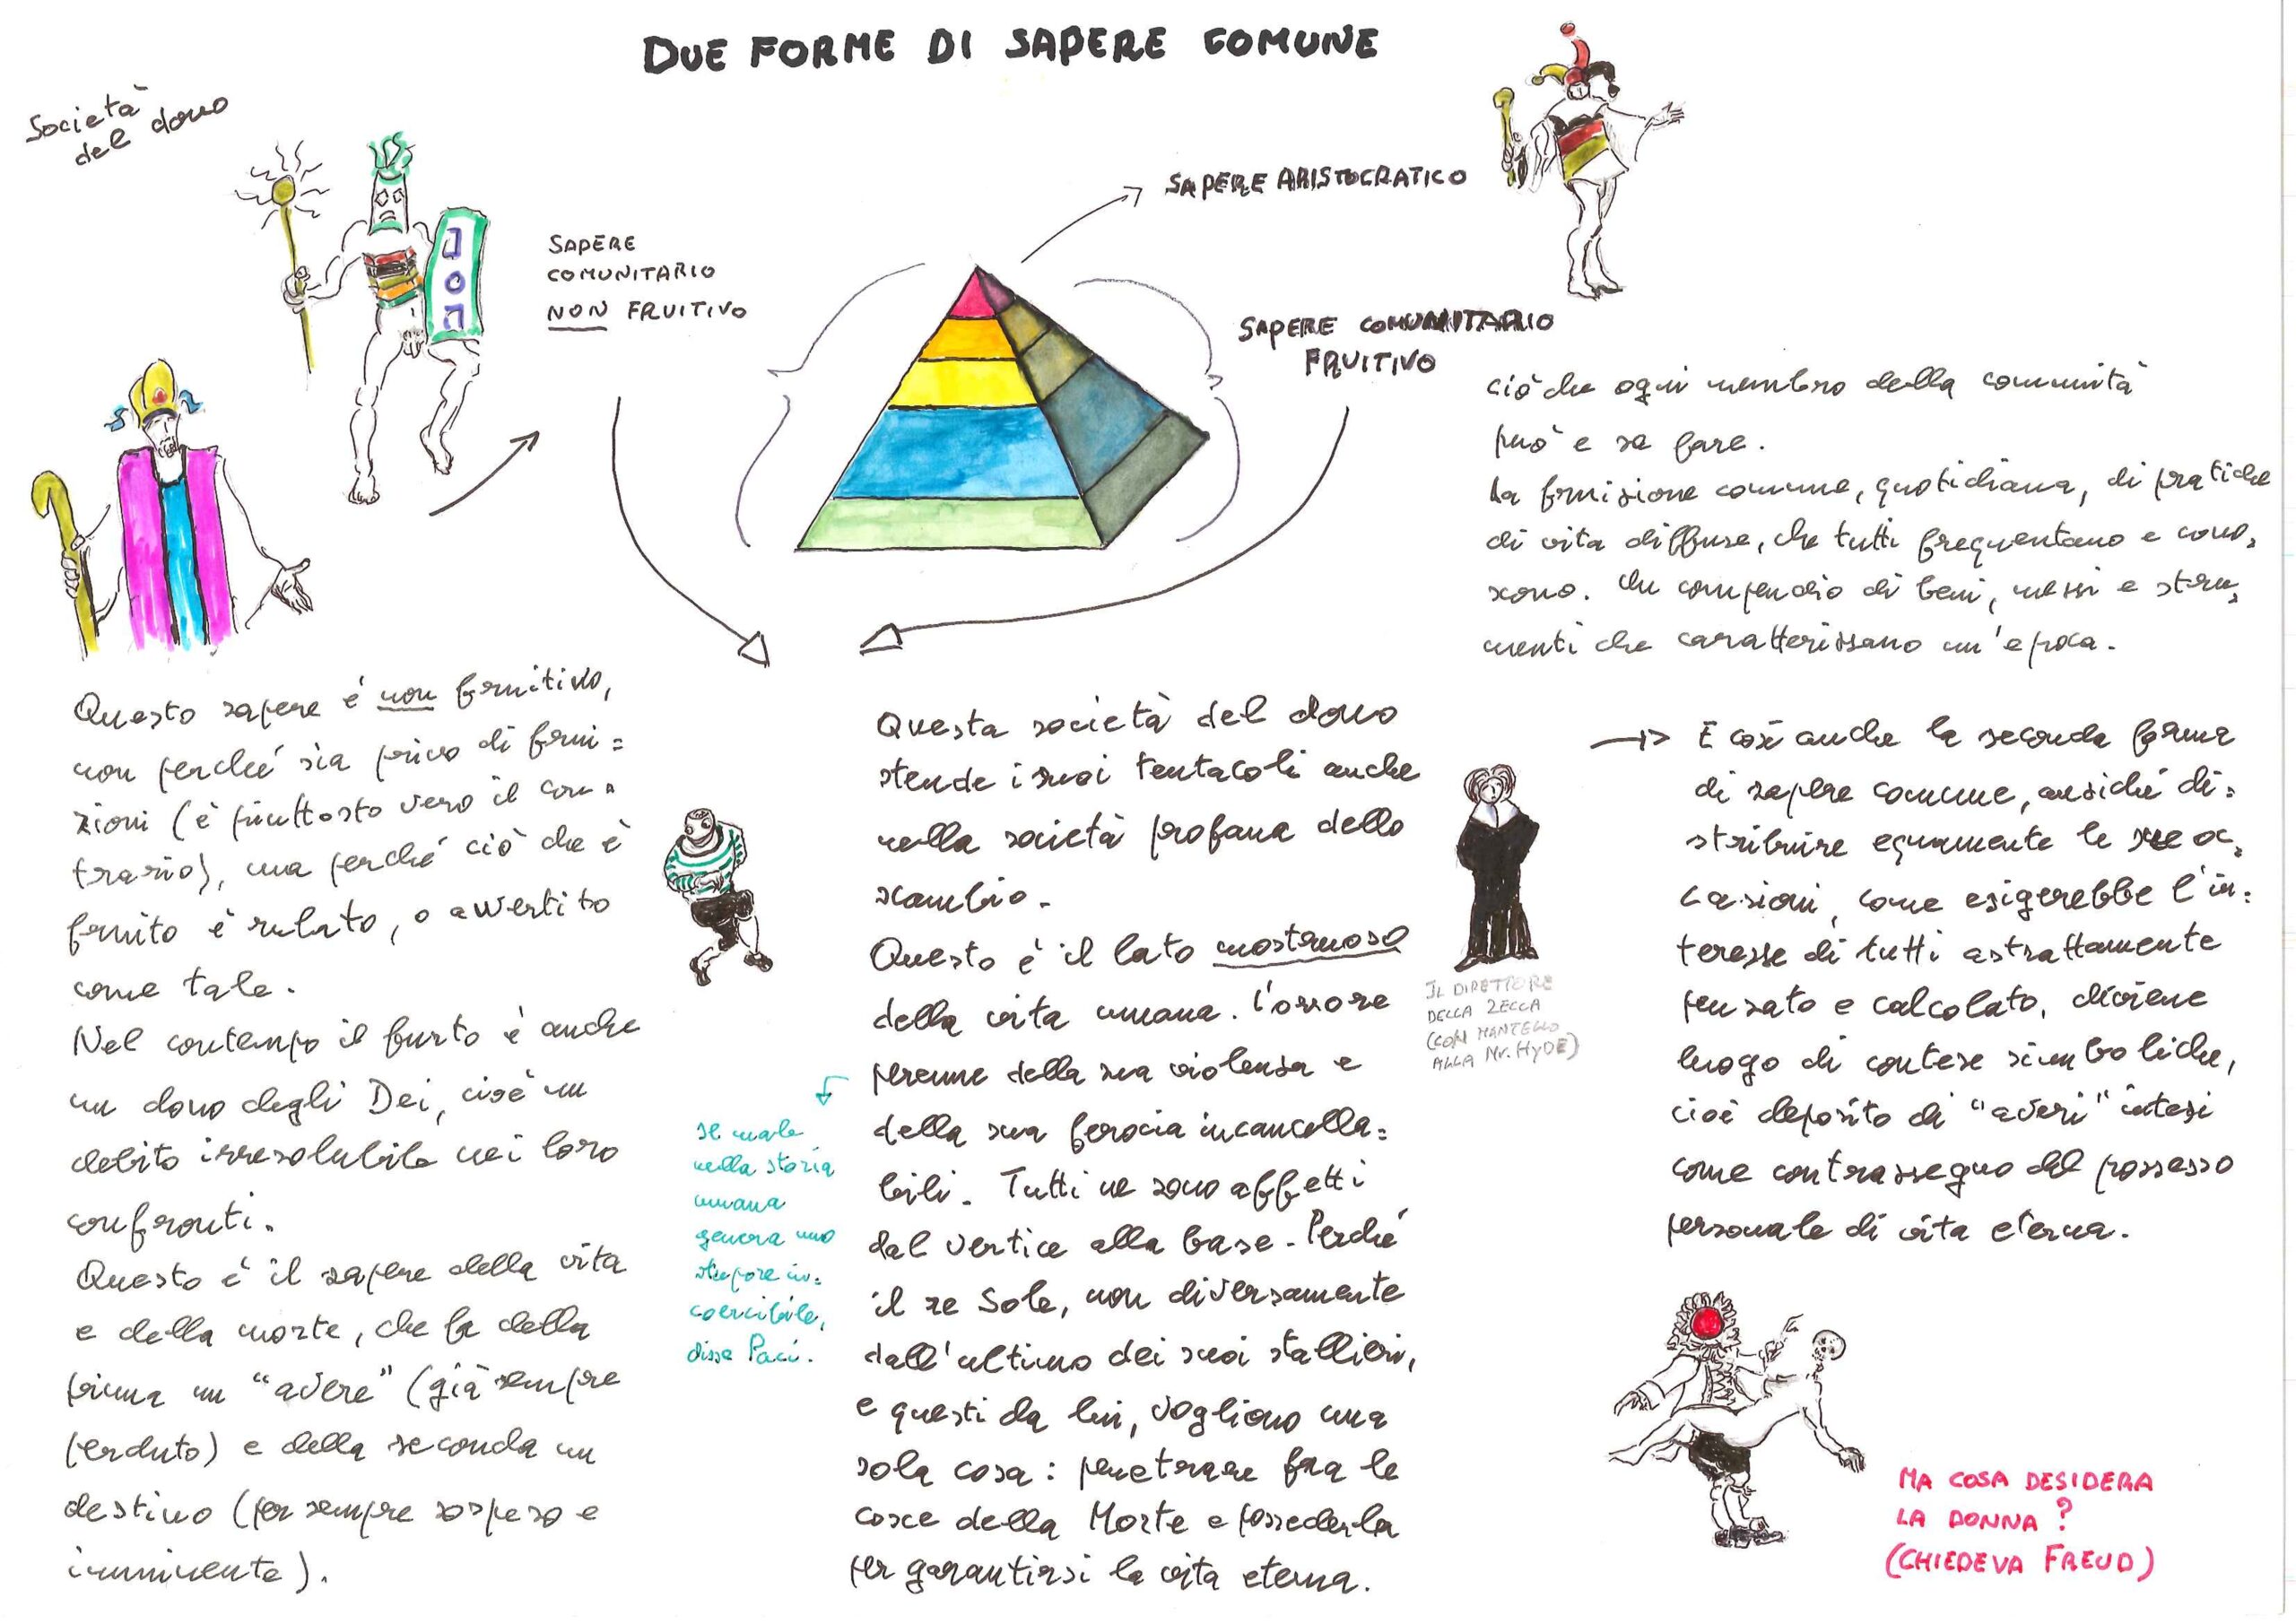 DUE FORME DI SAPERE COMUNE
Società
del dono
SAPERE
COMUNITARIO
NON FRUITIVO
SAPERE ARISTOCRATICO
SAPERE COMUNITARIO
FRUITIVO
DON
ciò che ogni membro della comunità
può e sa fare.
La fruizione comune, quotidiana, di pratiche
di vita diffuse, che tutti frequentano e cono,
scono. Un compendio di beni, messi e stru,
menti che caratterizzano un'epoca.
Questo sapere è non fruitivo,
non perché sia privo di frui=
zioni (è piuttosto vero il con=
trario), ma perché ciò che è
fruito è rubato, o avvertito
come tale.
Nel contempo il furto è anche
un dono degli Dei, cioè un
debito irresolubile nei loro
confronti.
Questo è il sapere della vita
e della morte, che fa della
prima un "avere" (già sempre
perduto) e della seconda un
destino (per sempre sospeso e
imminente).
Il male
nella storia
umana
genera uno
stupore in=
coercibile,
disse Paci.
Questa società del dono
stende i suoi tentacoli anche
nella società profana dello
scambio.
Questo è il lato mostruoso
della vita umana. L'orrore
perenne della sua violenza e
della sua ferocia incancella=
bili. Tutti ne sono affetti
dal vertice alla base. Perché
il re Sole, non diversamente
dall'ultimo dei suoi stallieri,
e questi da lui, vogliono una
sola cosa: penetrare fra le
cosce della Morte e possederla
per garantirsi la vita eterna.
IL DIRETTORE
DELLA ZECCA
(CON MANTELLO
ALLA Mr. HYDE)
E così anche la seconda forma
di sapere comune, anziché di=
stribuire equamente le sue oc,
casioni, come esigerebbe l'in=
teresse di tutti astrattamente
pensato e calcolato, diviene
luogo di contese simboliche,
cioè deposito di "averi" intesi
come contrassegno del possesso
personale di vita eterna.
MA COSA DESIDERA
LA DONNA?
(CHIEDEVA FREUD)